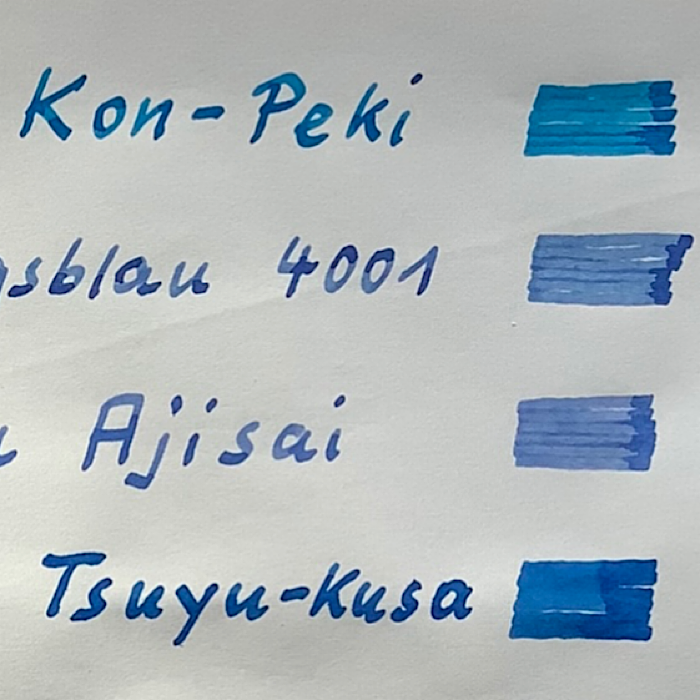 Kon-Peki
sblau 4001
Ajisai
Tsuyu-Kusa